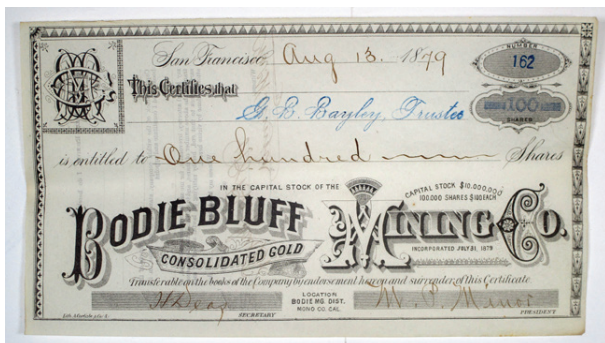 San Francisco, Aug 13. 1879
NUMBER
162
This Certifies that
G. B. Bayley, Trustee
100
SHARES
is entitled to One hundred Shares
IN THE CAPITAL STOCK OF THE
CAPITAL STOCK $10,000,000
100.000 SHARES $100 EACH
BODIE BLUFF MINING CO.
CONSOLIDATED GOLD
INCORPORATED JULY 31, 1879
Transferable on the books of the Company by endorsement hereon and surrender of this Certificate
LOCATION
BODIE MG. DIST.
MONO CO. CAL.
SECRETARY
PRESIDENT